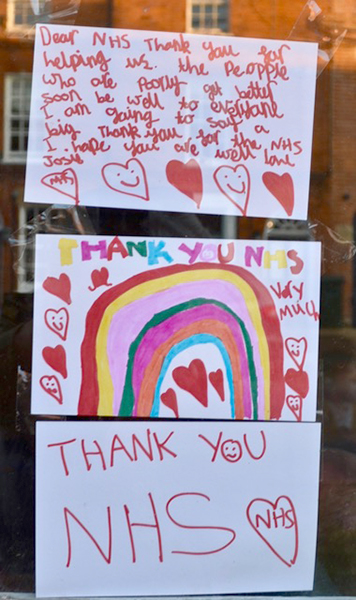 Dear NHS Thank you for
helping us. the Peopple
who are poorly get better
soon be well to everyone
I am going to say a
big Thank you for the NHS
I hope you are well love
Josie
NHS
THANK YOU NHS
Very
much
THANK YOU
NHS
NHS